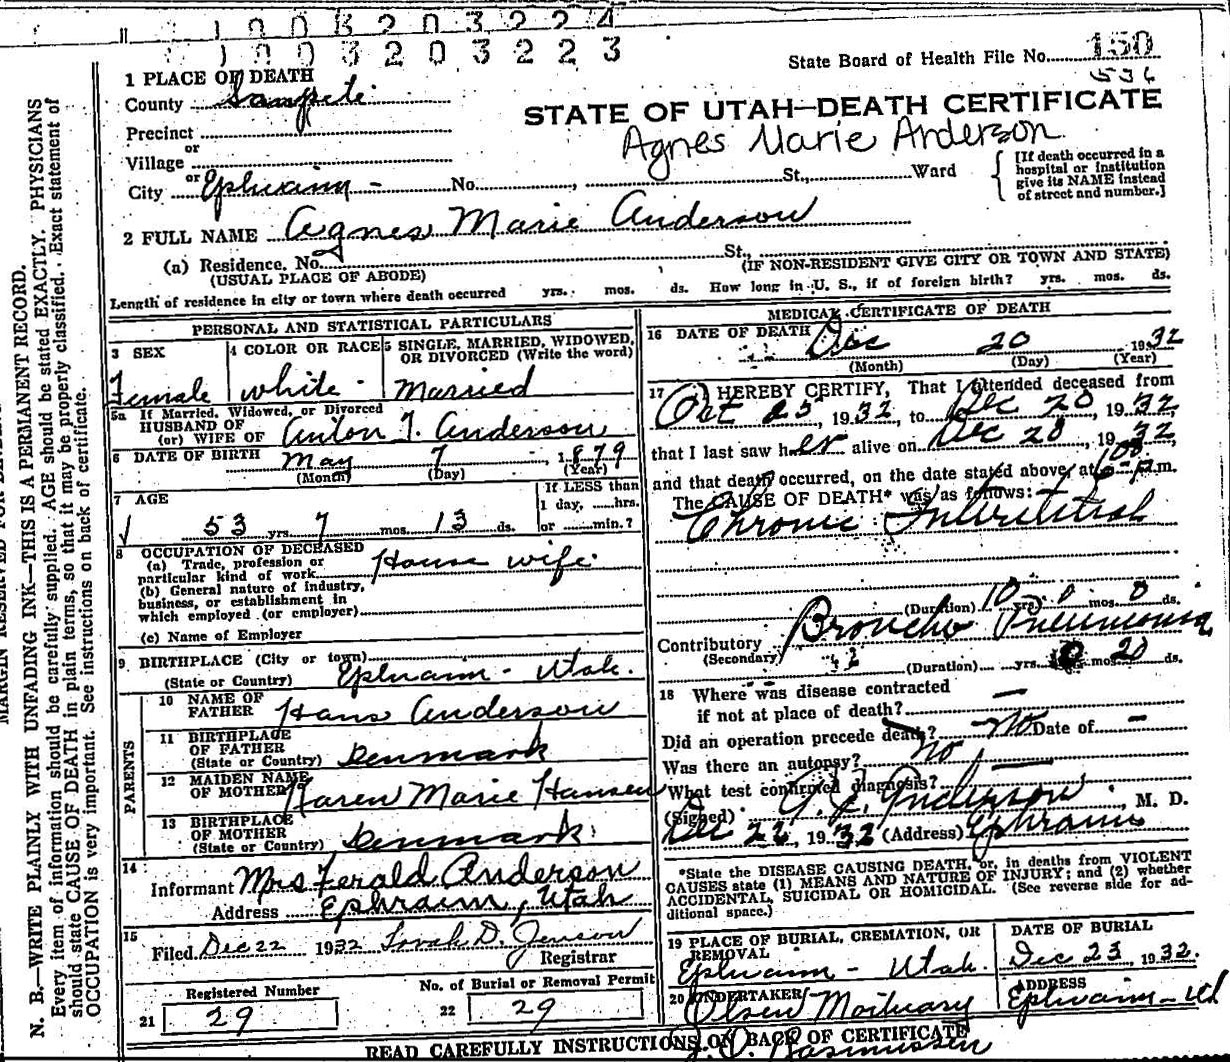 1003203224
1003203223
State Board of Health File No. 150
536
1 PLACE OF DEATH
County Sanpete
STATE OF UTAH—DEATH CERTIFICATE
Agnes Marie Anderson
Precinct
or
Village
or
City Ephraim - No. , St., Ward
[If death occurred in a
hospital or institution
give its NAME instead
of street and number.]
2 FULL NAME Agnes Marie Anderson
(a) Residence, No. St.,
(USUAL PLACE OF ABODE) (IF NON-RESIDENT GIVE CITY OR TOWN AND STATE)
Length of residence in city or town where death occurred yrs. mos. ds. How long in U. S., if of foreign birth? yrs. mos. ds.
PERSONAL AND STATISTICAL PARTICULARS
3 SEX
Female
4 COLOR OR RACE
white
5 SINGLE, MARRIED, WIDOWED,
OR DIVORCED (Write the word)
Married
5a If Married, Widowed, or Divorced
HUSBAND OF
(or) WIFE OF Anton J. Anderson
6 DATE OF BIRTH May 7, 1879
(Month) (Day) (Year)
7 AGE
53 yrs. 7 mos. 13 ds.
If LESS than
1 day, hrs.
or min.?
8 OCCUPATION OF DECEASED
(a) Trade, profession or
particular kind of work House wife
(b) General nature of industry,
business, or establishment in
which employed (or employer)
(c) Name of Employer
9 BIRTHPLACE (City or town)
(State or Country) Ephraim - Utah.
PARENTS
10 NAME OF
FATHER Hans Anderson
11 BIRTHPLACE
OF FATHER
(State or Country) Denmark
12 MAIDEN NAME
OF MOTHER Karen Marie Hansen
13 BIRTHPLACE
OF MOTHER
(State or Country) Denmark
14
Informant Mrs Ferald Anderson
Address Ephraim, Utah
15
Filed Dec 22 1932 Sarah D. Jenson
Registrar
Registered Number
21 29
No. of Burial or Removal Permit
22 29
MEDICAL CERTIFICATE OF DEATH
16 DATE OF DEATH Dec 20 1932
(Month) (Day) (Year)
17 I HEREBY CERTIFY, That I attended deceased from
Oct 23, 1932, to Dec 20, 1932,
that I last saw her alive on Dec 20, 1932,
and that death occurred, on the date stated above, at m.
The CAUSE OF DEATH* was as follows:
Chronic Interstitial
(Duration) 10 yrs. 0 mos. 0 ds.
Contributory Broncho Pneumonia
(Secondary)
(Duration) yrs. 0 mos. 20 ds.
18 Where was disease contracted
if not at place of death? —
Did an operation precede death? No Date of —
Was there an autopsy? No
What test confirmed diagnosis? —
(Signed) Anderson, M. D.
Dec 22, 1932 (Address) Ephraim
*State the DISEASE CAUSING DEATH, or, in deaths from VIOLENT
CAUSES state (1) MEANS AND NATURE OF INJURY; and (2) whether
ACCIDENTAL, SUICIDAL OR HOMICIDAL. (See reverse side for ad-
ditional space.)
19 PLACE OF BURIAL, CREMATION, OR
REMOVAL
Ephraim - Utah.
DATE OF BURIAL
Dec 23, 1932.
20 UNDERTAKER
Olsen Mortuary
Rasmussen
ADDRESS
Ephraim - Ut
READ CAREFULLY INSTRUCTIONS ON BACK OF CERTIFICATE
MARGIN RESERVED FOR
N. B.—WRITE PLAINLY WITH UNFADING INK—THIS IS A PERMANENT RECORD.
Every item of information should be carefully supplied. AGE should be stated EXACTLY. PHYSICIANS
should state CAUSE OF DEATH in plain terms, so that it may be properly classified. Exact statement of
OCCUPATION is very important. See instructions on back of certificate.